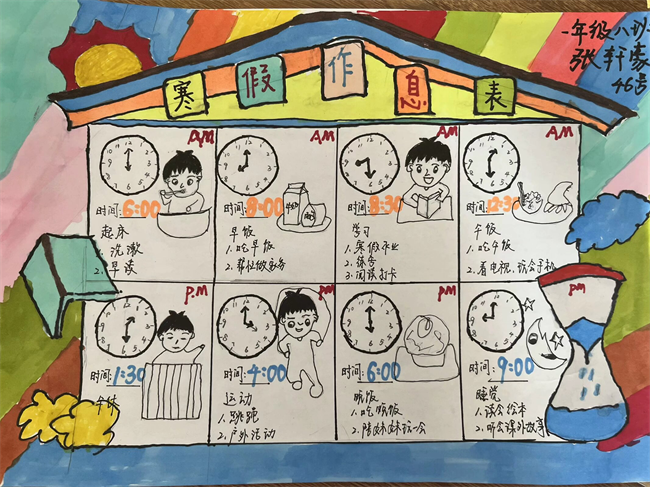 一年级八班
张轩豪
46号
寒假作息表
AM
时间:6:00
起床
1.洗漱
2.早读
AM
时间:8:00
早饭
1.吃早饭
2.帮忙做家务
AM
时间:8:30
学习
1.寒假作业
2.练字
3.阅读打卡
AM
时间:12:30
午饭
1.吃午饭
2.看电视、玩会手机
P.M
时间:1:30
午休
pm
时间:4:00
运动
1.跳跳
2.户外活动
pm
时间:6:00
晚饭
1.吃晚饭
2.陪妹妹玩一会
pm
时间:9:00
睡觉
1.读会绘本
2.听会课外故事